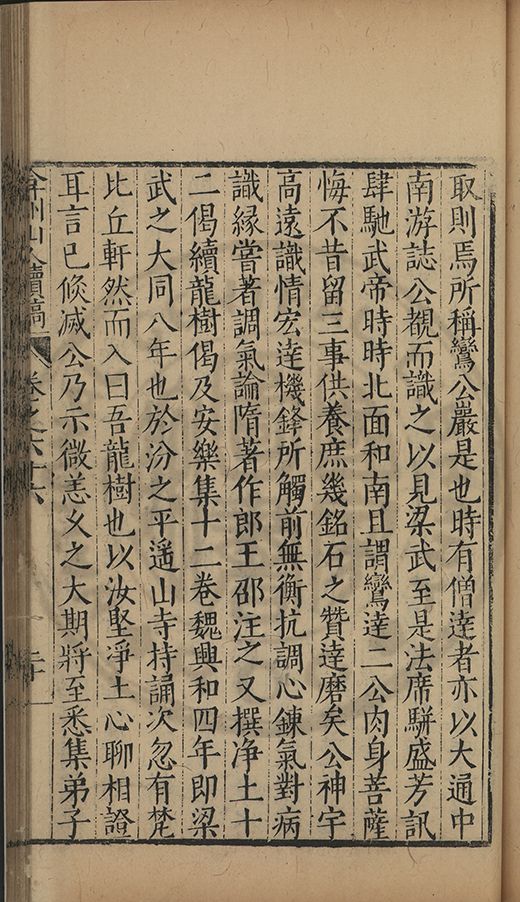 取則焉所稱鸞公巖是也時有僧達者亦以大通中
南游誌公覩而識之以見梁武至是法席駢盛芳訊
肆馳武帝時時北面和南且謂鸞達二公肉身菩薩
悔不昔留三事供養庶幾銘石之贊達磨矣公神宇
高遠識情宏達機鋒所觸前無衡抗調心鍊氣對病
識緣嘗著調氣論隋著作郎王邵注之又撰淨土十
二偈續龍樹偈及安樂集十二卷魏興和四年即梁
武之大同八年也於汾之平遥山寺持誦次忽有梵
比丘軒然而入曰吾龍樹也以汝堅淨土心聊相證
耳言已倐滅公乃示微恙久之大期將至悉集弟子
弇州山人續稿 卷之六十六 二十